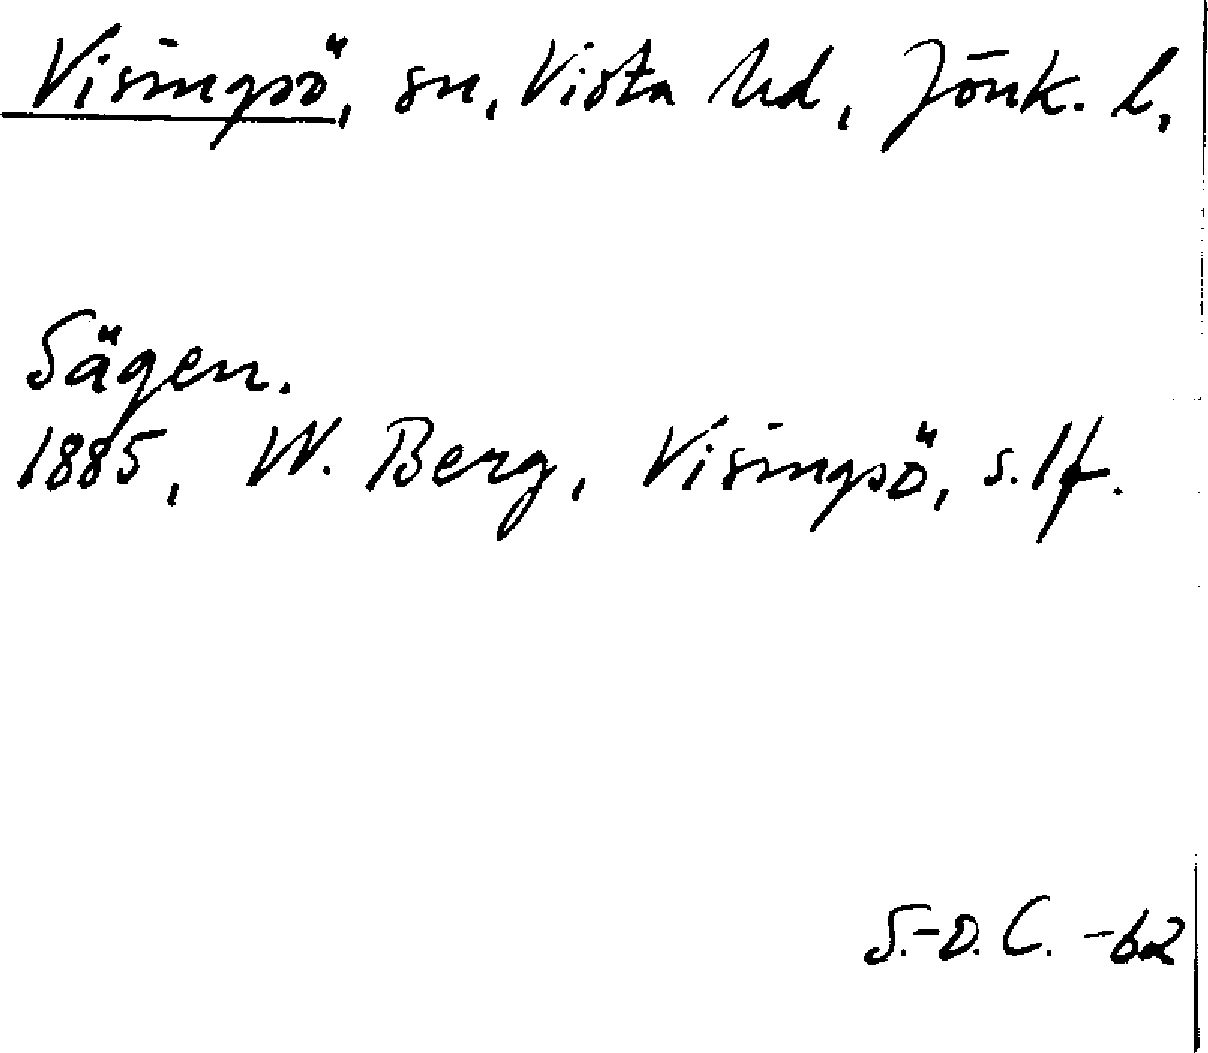 Visingsö, sn, Vista hd, Jönk. l,
Sägen.
1885, W. Berg, Visingsö, s. 1 f.
S.-O. C. -62